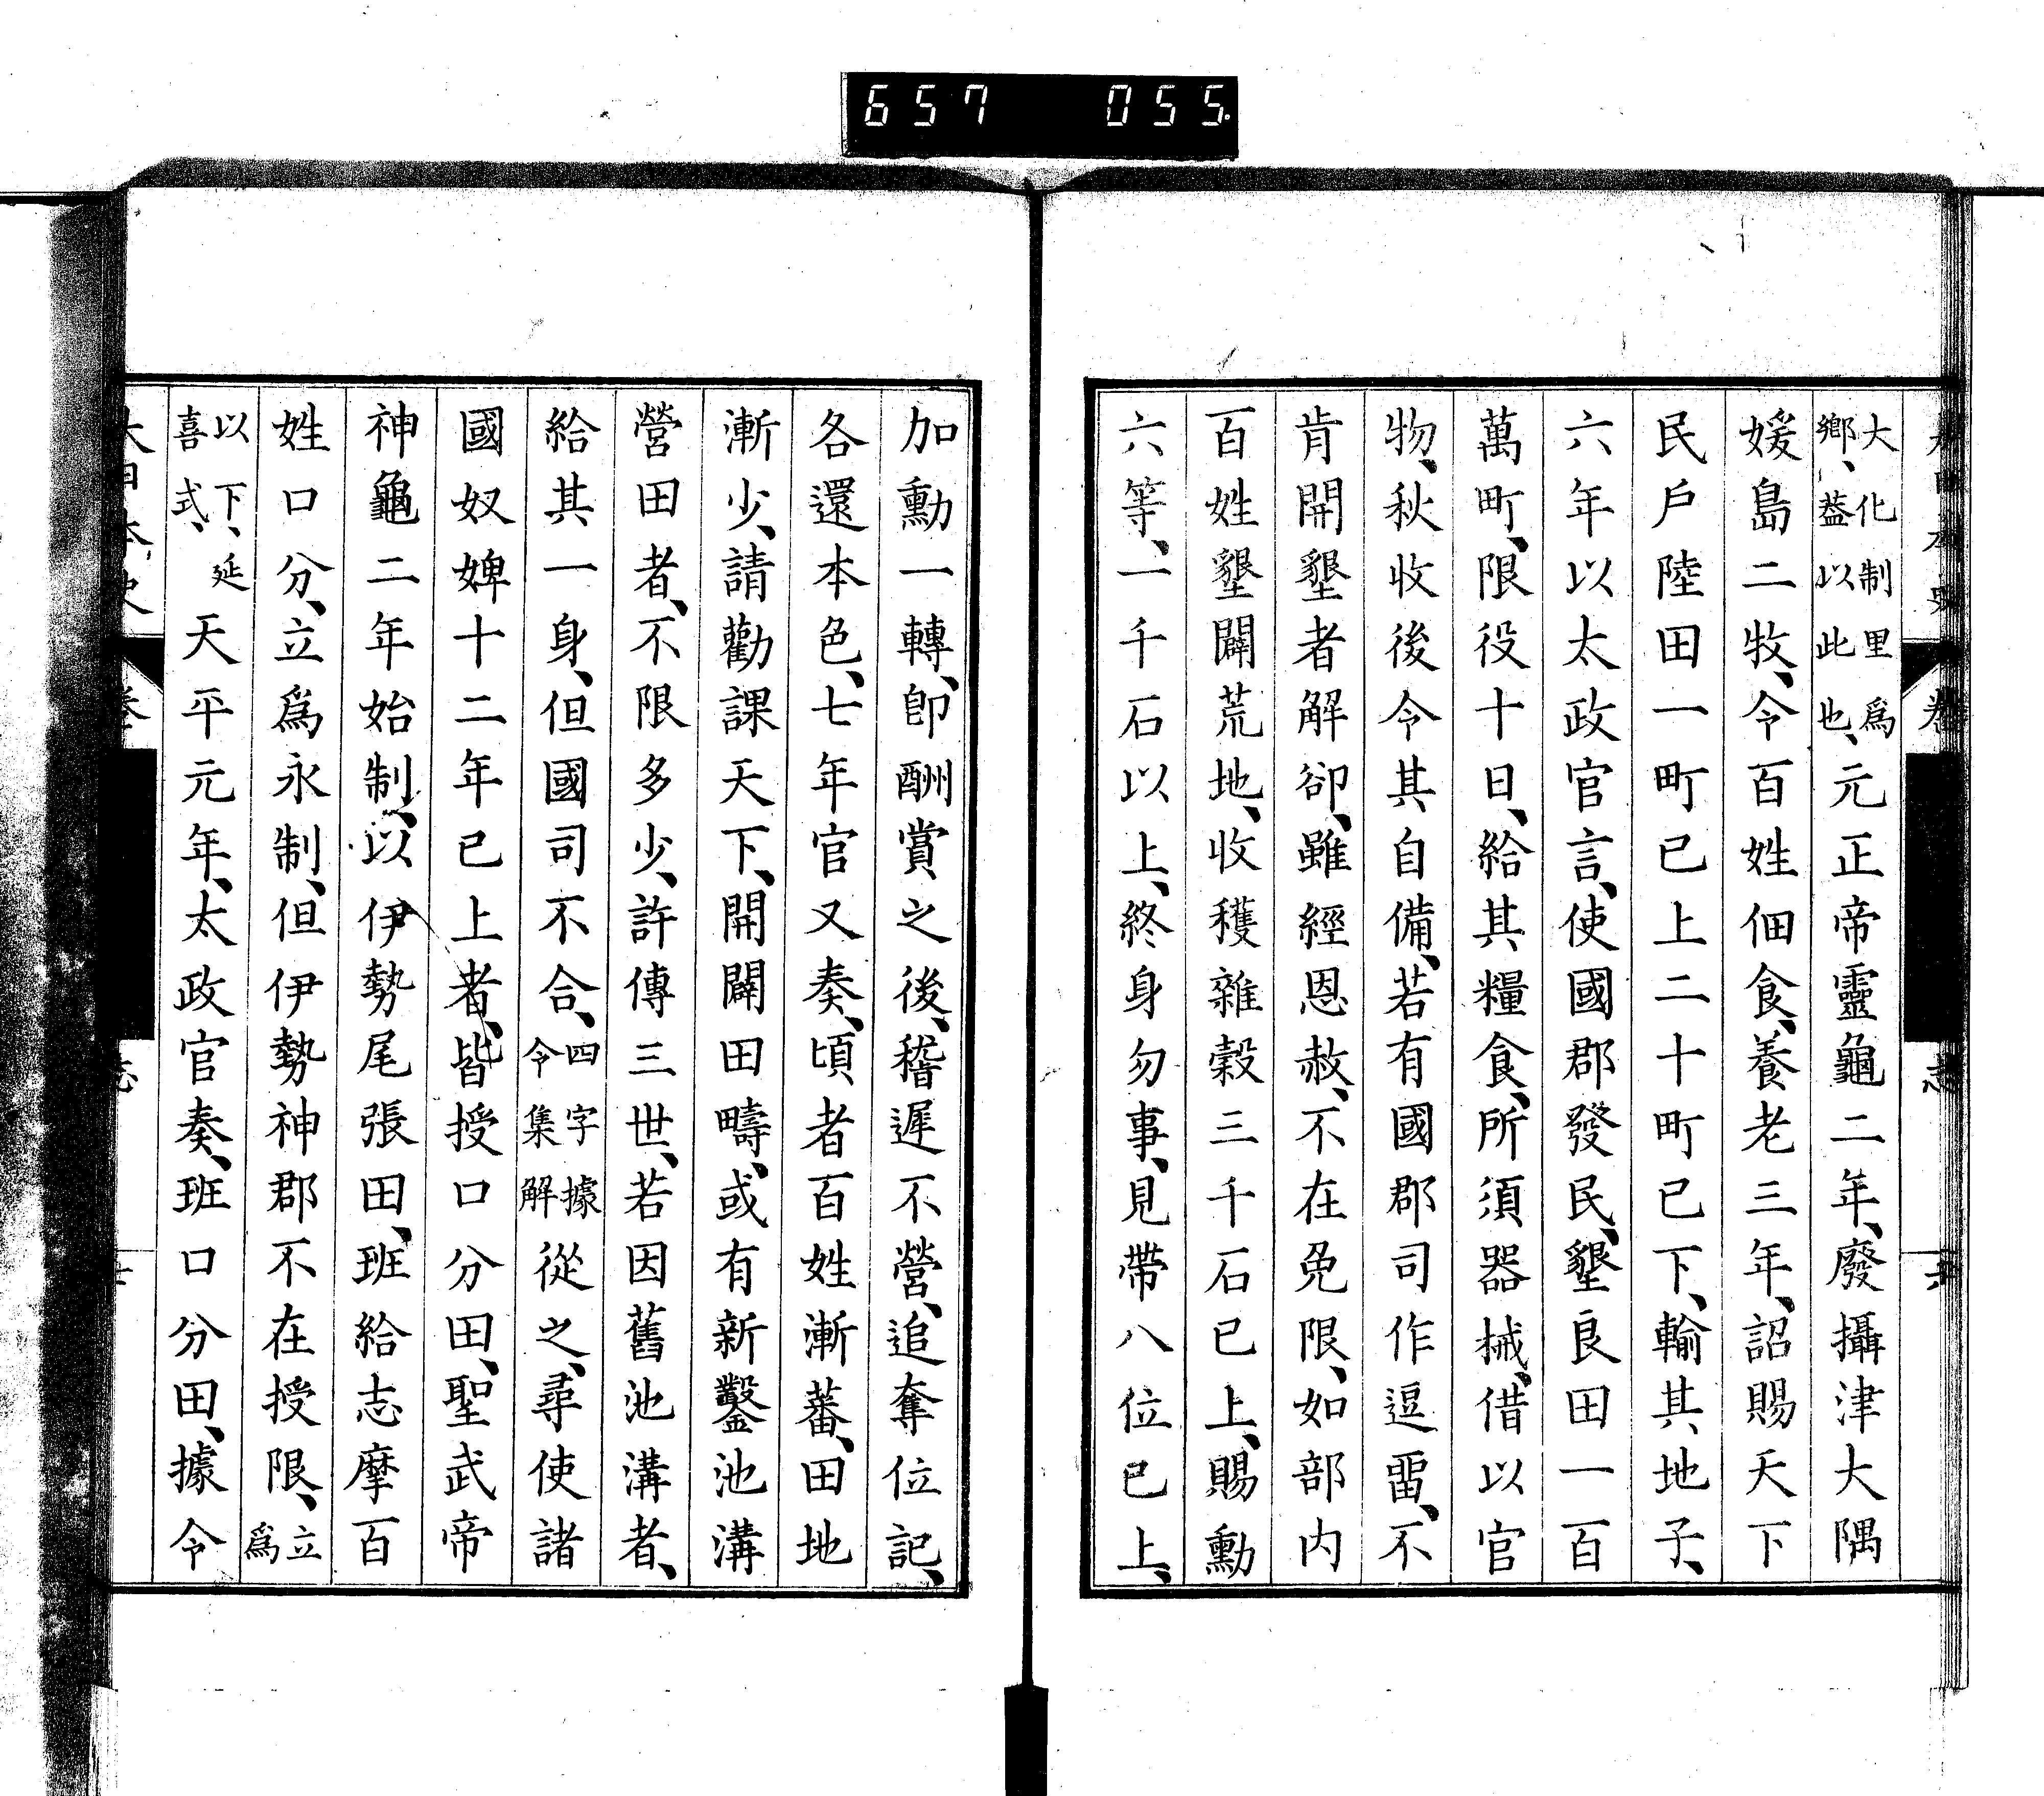 657 055
大化制里爲
鄉、蓋以此也、元正帝靈龜二年、廢攝津大隅
媛島二牧、令百姓佃食、養老三年、詔賜天下
民戶陸田一町已上二十町已下、輸其地子、
六年以太政官言、使國郡發民、墾良田一百
萬町、限役十日、給其糧食、所須器械、借以官
物、秋收後令其自備、若有國郡司作逗畱、不
肯開墾者解卻、雖經恩赦、不在免限、如部内
百姓墾闢荒地、收穫雜穀三千石已上、賜勳
六等、一千石以上、終身勿事、見帶八位已上、
加勳一轉、卽酬賞之後、稽遲不營、追奪位記、
各還本色、七年官又奏、頃者百姓漸蕃、田地
漸少、請勸課天下、開闢田疇、或有新鑿池溝
營田者、不限多少、許傳三世、若因舊池溝者、
給其一身、但國司不合、四字據令集解從之、尋使諸
國奴婢十二年已上者、皆授口分田、聖武帝
神龜二年始制、以伊勢尾張田、班給志摩百
姓口分、立爲永制、但伊勢神郡不在授限、立爲
以下、延喜式、天平元年、太政官奏、班口分田、據令